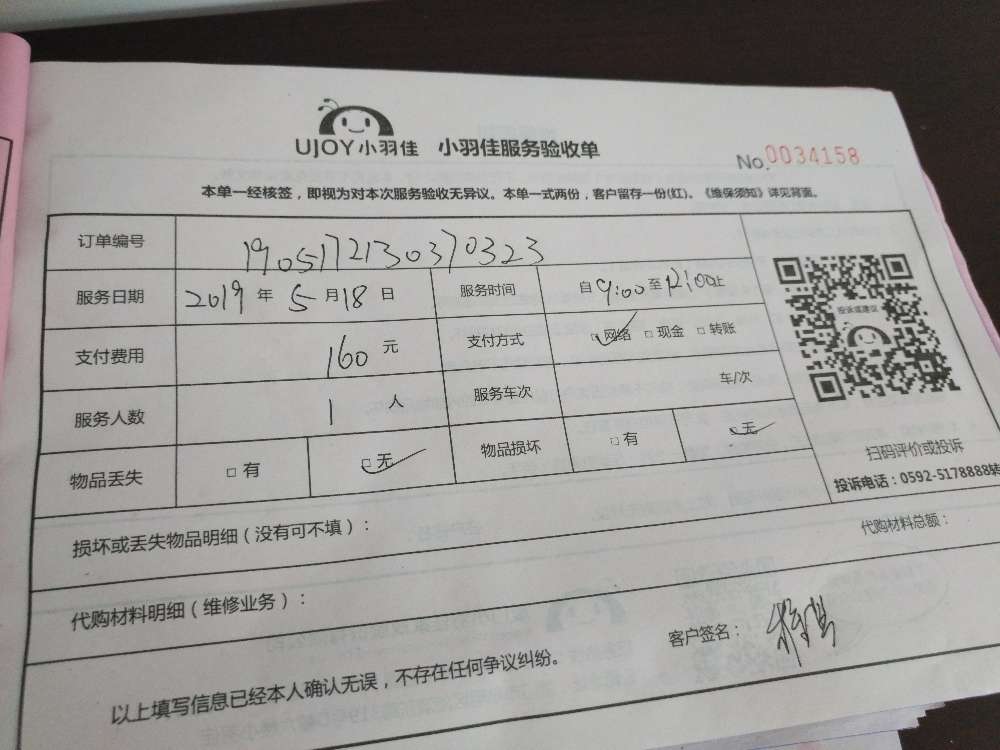 UJOY小羽佳 小羽佳服务验收单
No.0034158
本单一经核签，即视为对本次服务验收无异议。本单一式两份，客户留存一份(红)。《维保须知》详见背面。
订单编号 190517213037​0323
服务日期 2019 年 5 月 18 日 服务时间 自 9:00 至 12:00 止
支付费用 160 元 支付方式 □网络 □现金 □转账
服务人数 1 人 服务车次 车/次
物品丢失 □有 □无 物品损坏 □有 □无
投诉或建议
扫码评价或投诉
投诉电话：0592-5178888转
损坏或丢失物品明细（没有可不填）：
代购材料总额：
代购材料明细（维修业务）：
客户签名：
以上填写信息已经本人确认无误，不存在任何争议纠纷。